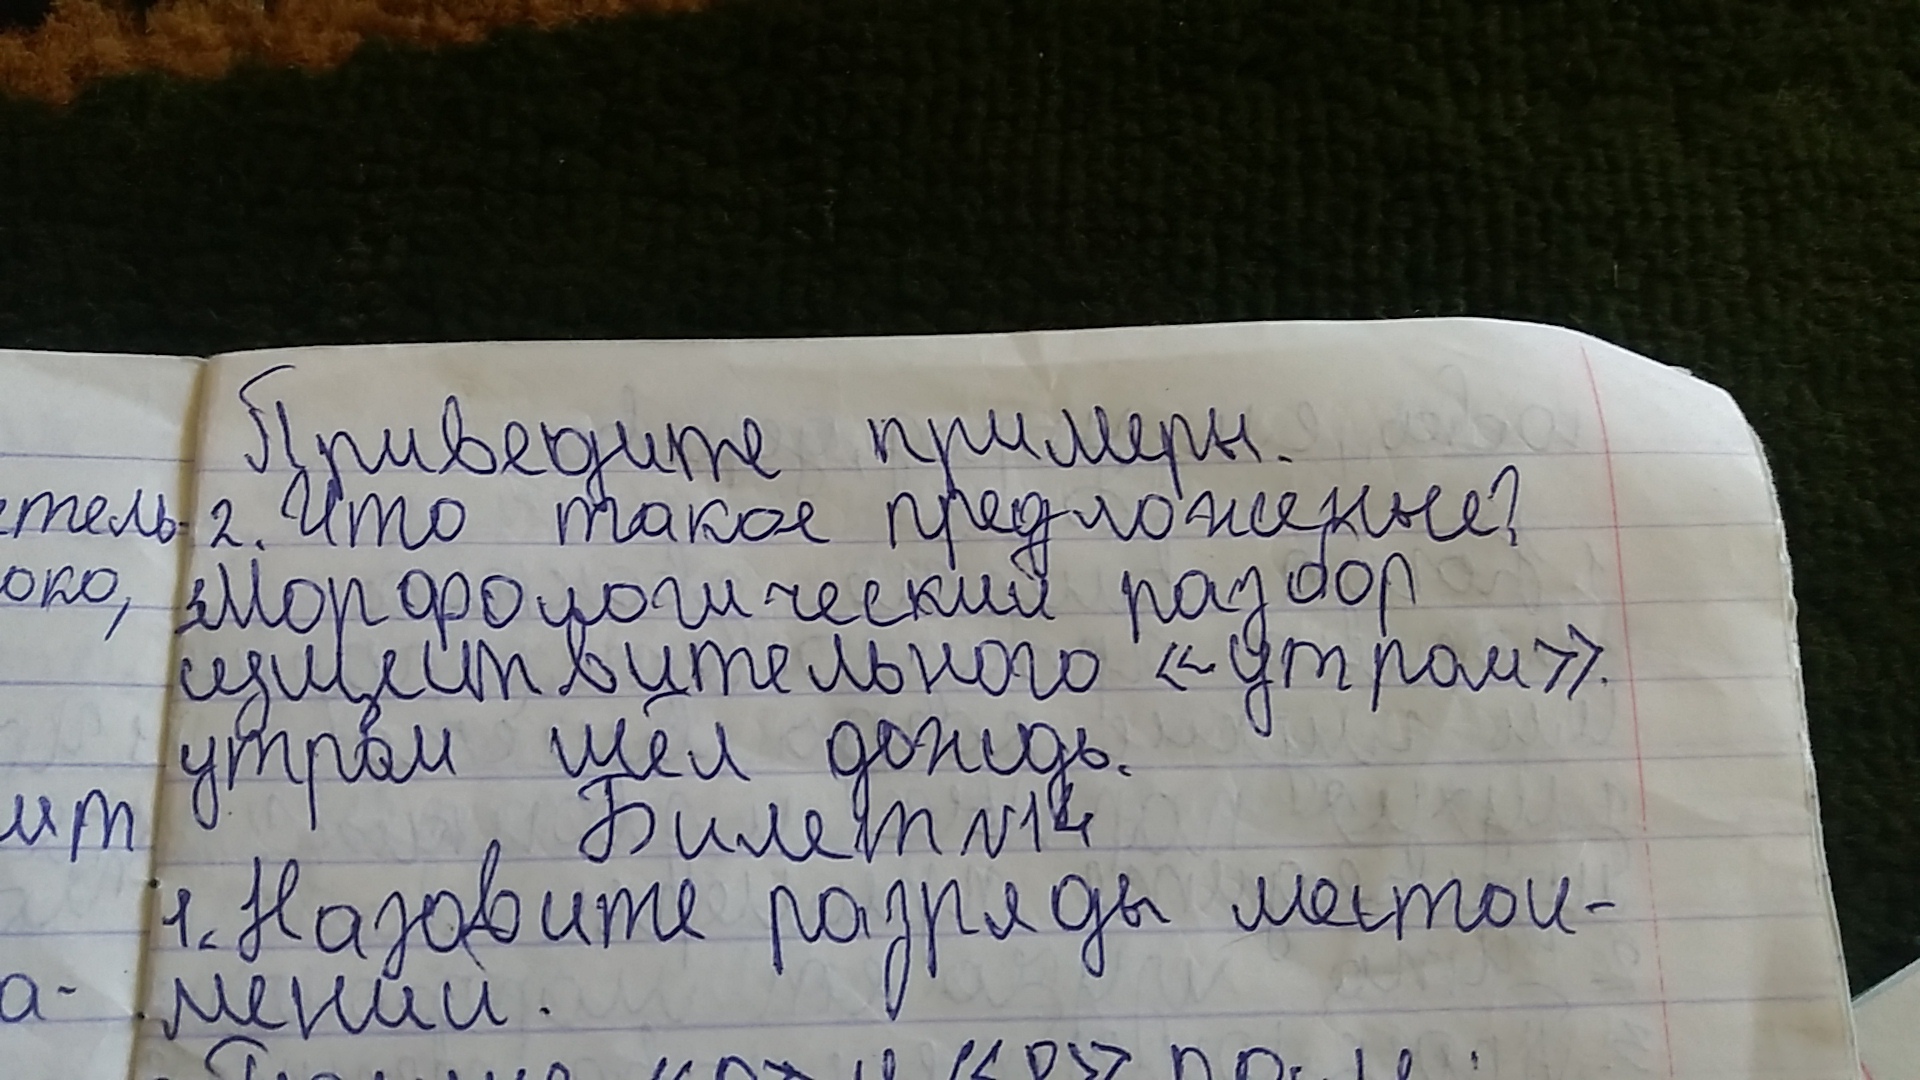 етель-
око,
ит
а-
Приведите примеры.
2. Что такое предложенье?
3Морфологический разбор
существительного «утром».
утром шёл дождь.
Билет №14
1. Назовите разряды местои-
мений.